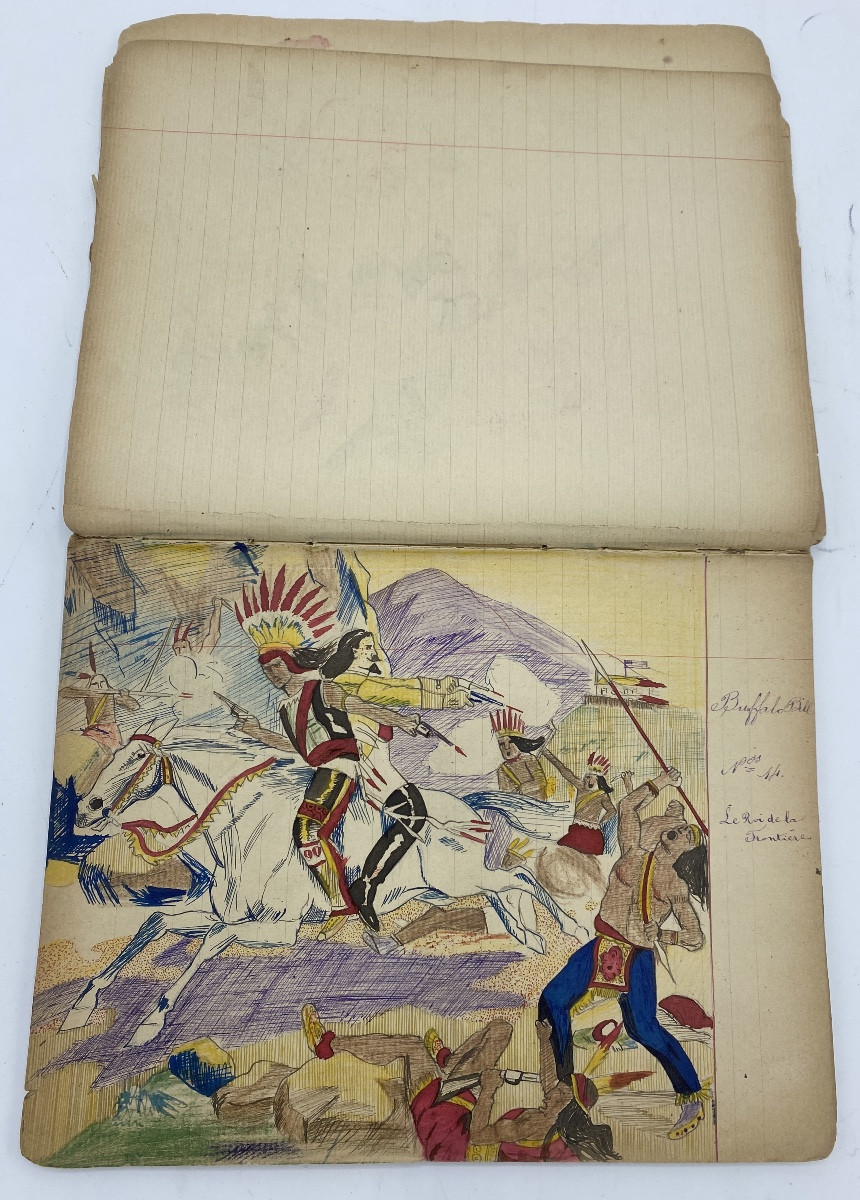 Buffalo Bill
Nos 14.
Le Roi de la
Frontière